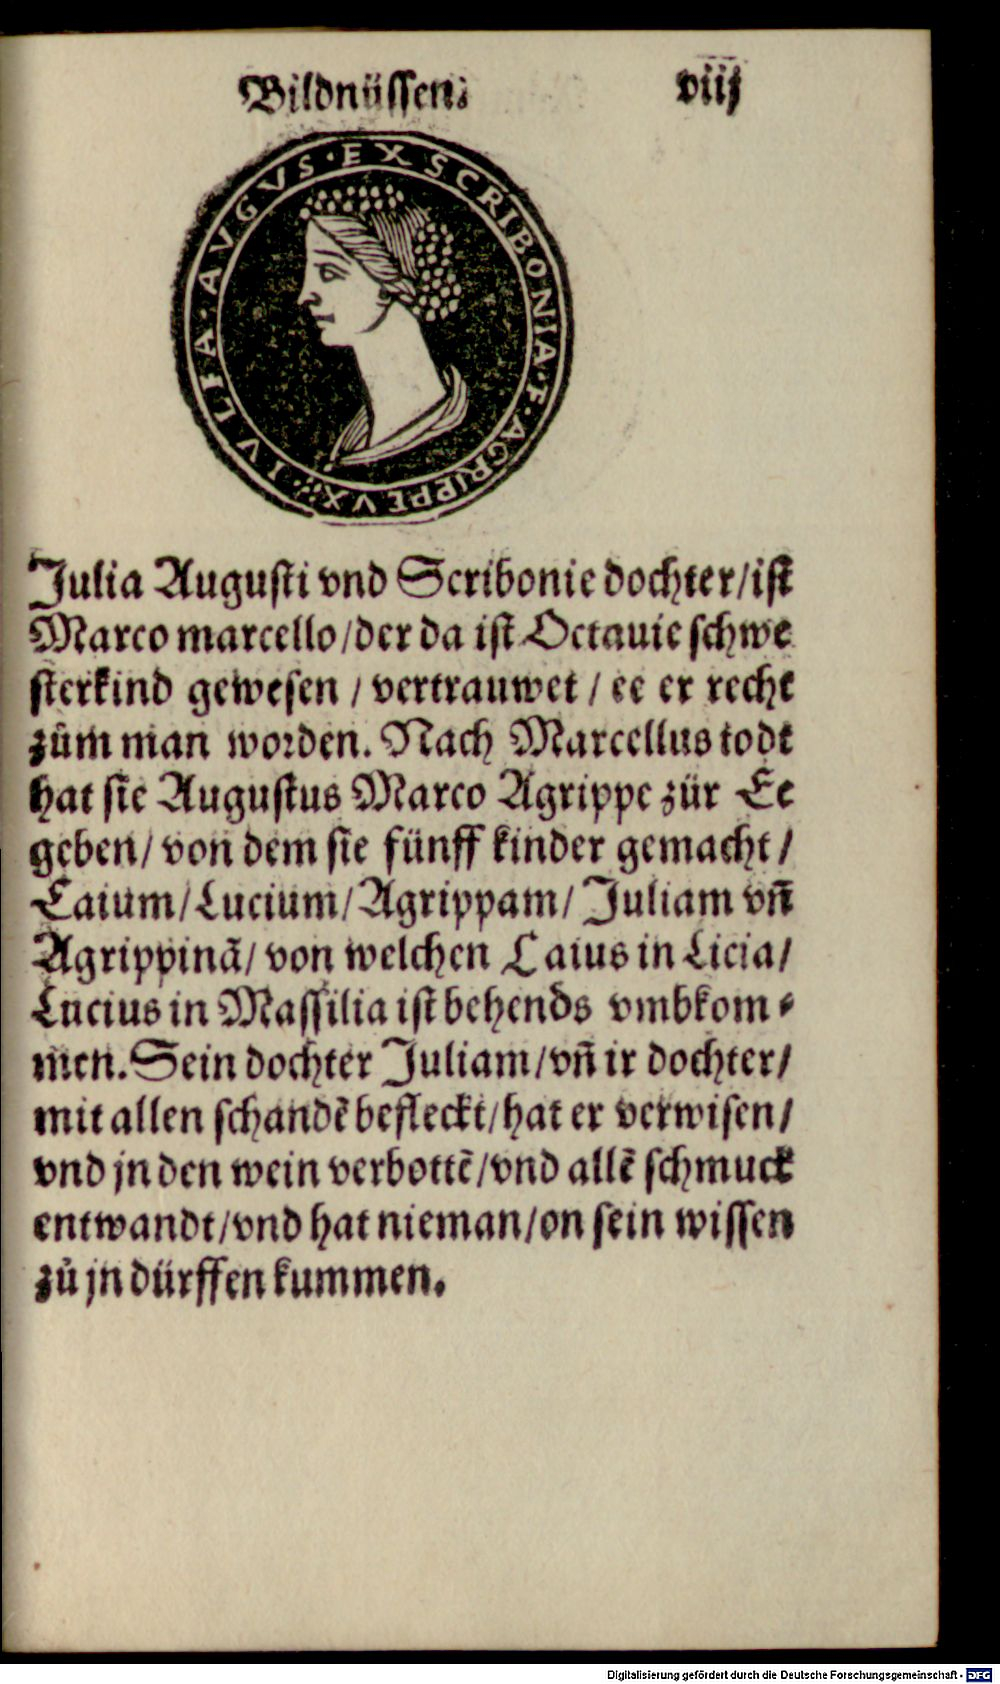 Bildnüssen. viij
IVLIA · AVGVS · EX SCRIBONIA · F · AGRIPPE VX
Julia Augusti vnd Scribonie dochter/ist
Marco marcello/der da ist Octauie schwe
sterkind gewesen / vertrauwet / ee er recht
zům man worden. Nach Marcellus todt
hat sie Augustus Marco Agrippe zür Ee
geben/ von dem sie fünff kinder gemacht /
Caium/Lucium/Agrippam/ Juliam vn̄
Agrippinā/ von welchen Caius in Licia/
Lucius in Massilia ist behends vmbkom⸗
men. Sein dochter Juliam/vn̄ ir dochter/
mit allen schandē befleckt/hat er verwisen/
vnd jn den wein verbottē/vnd allē schmuck
entwandt/vnd hat nieman/on sein wissen
zů jn dürffen kummen.
Digitalisierung gefördert durch die Deutsche Forschungsgemeinschaft - DFG